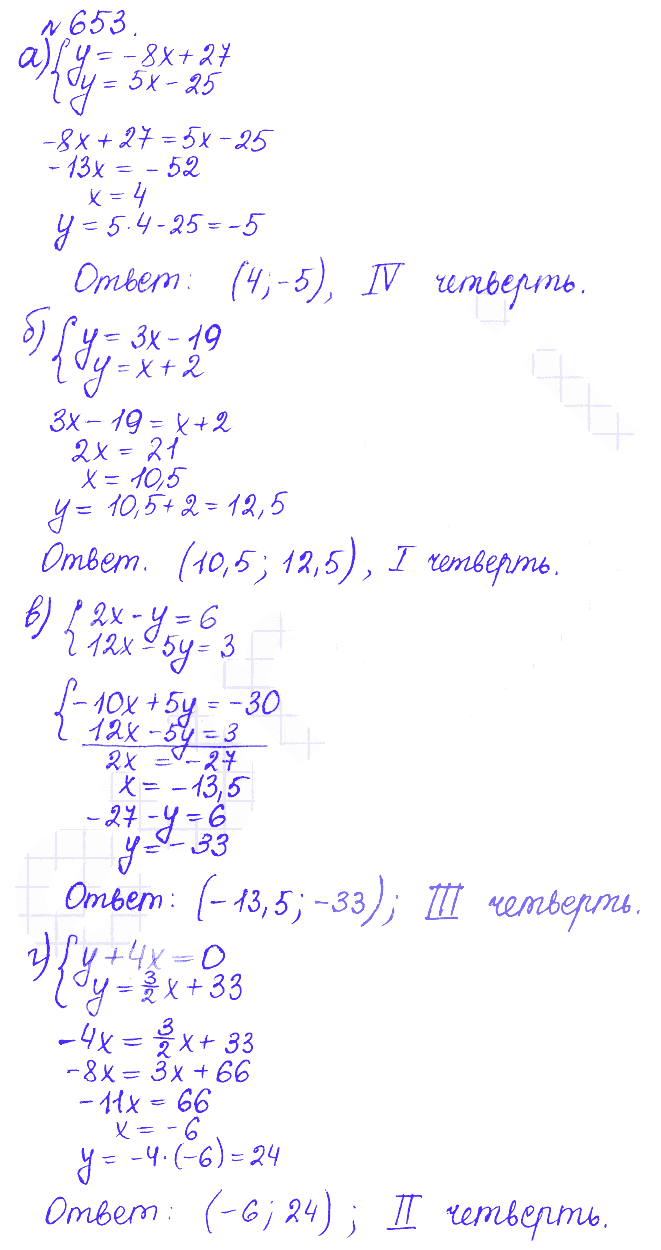 № 653.
а) { y = -8x + 27
y = 5x - 25
-8x + 27 = 5x - 25
-13x = -52
x = 4
y = 5·4 - 25 = -5
Ответ: (4; -5), IV четверть.
б) { y = 3x - 19
y = x + 2
3x - 19 = x + 2
2x = 21
x = 10,5
y = 10,5 + 2 = 12,5
Ответ. (10,5; 12,5), I четверть.
в) { 2x - y = 6
12x - 5y = 3
{ -10x + 5y = -30
12x - 5y = 3
2x = -27
x = -13,5
-27 - y = 6
y = -33
Ответ: (-13,5; -33); III четверть.
г) { y + 4x = 0
y = 3/2 x + 33
-4x = 3/2 x + 33
-8x = 3x + 66
-11x = 66
x = -6
y = -4·(-6) = 24
Ответ: (-6; 24); II четверть.